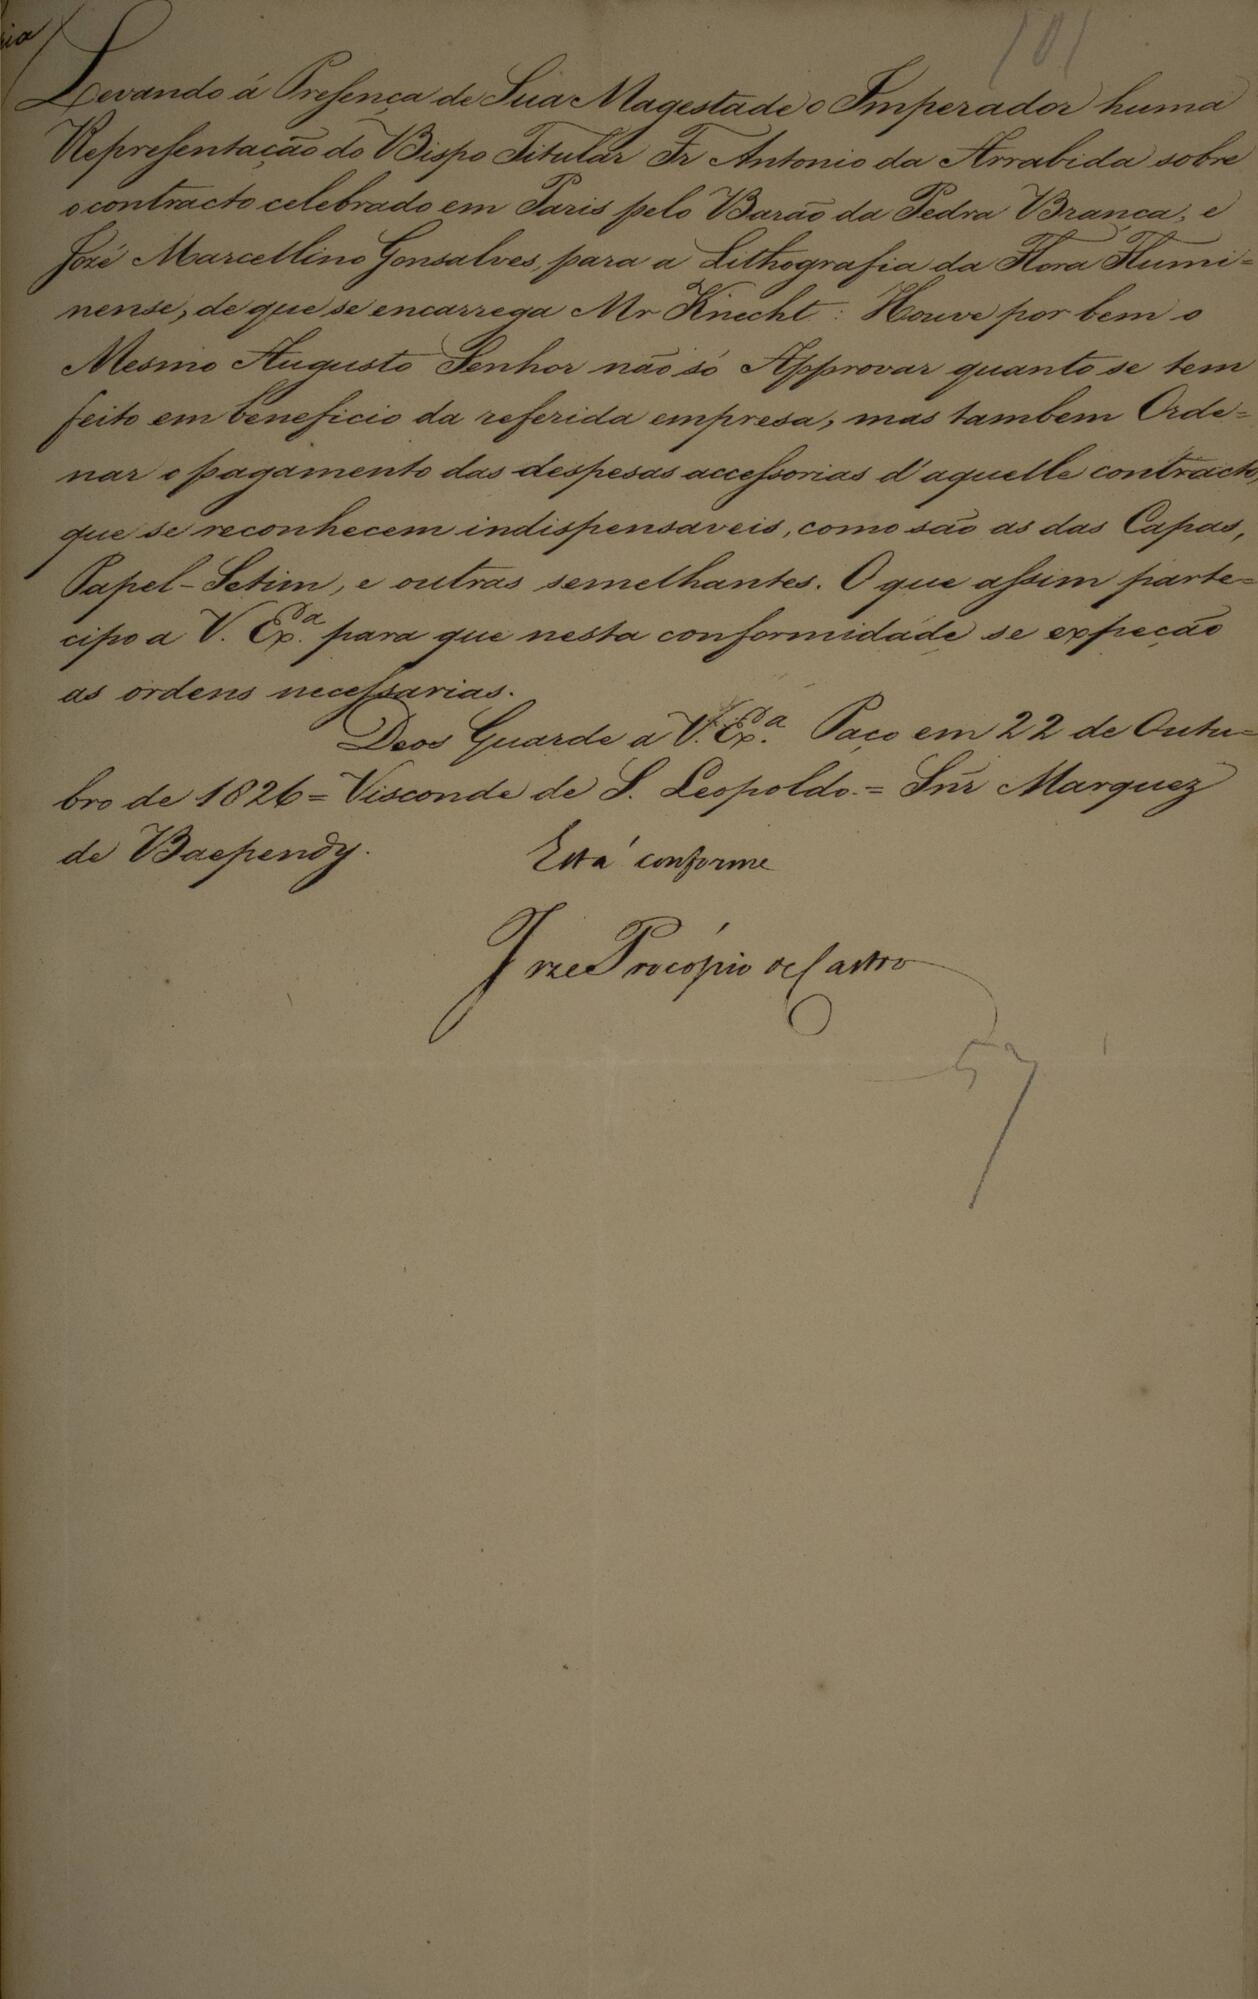 101
Levando á Presença de Sua Magestade o Imperador huma
Representação do Bispo Titular Fr Antonio da Arrabida sobre
o contracto celebrado em Paris pelo Barão da Pedra Branca, e
Jozé Marcellino Gonsalves, para a Lithografia da Flora Flumi=
nense, de que se encarrega Mr Knecht: Houve por bem o
Mesmo Augusto Senhor não só Approvar quanto se tem
feito em beneficio da referida empresa, mas tambem Orde=
nar o pagamento das despesas accessorias d'aquelle contracto,
que se reconhecem indispensaveis, como são as das Capas,
Papel-Setim, e outras semelhantes. O que assim parte=
cipo a V. Exª. para que nesta conformidade se expeção
as ordens necessarias.
Deos Guarde a V. Exª. Paço em 22 de Outu=
bro de 1826 = Visconde de S. Leopoldo. = Snr Marquez
de Baependy.
Está conforme
Jozé Procópio de Castro
57